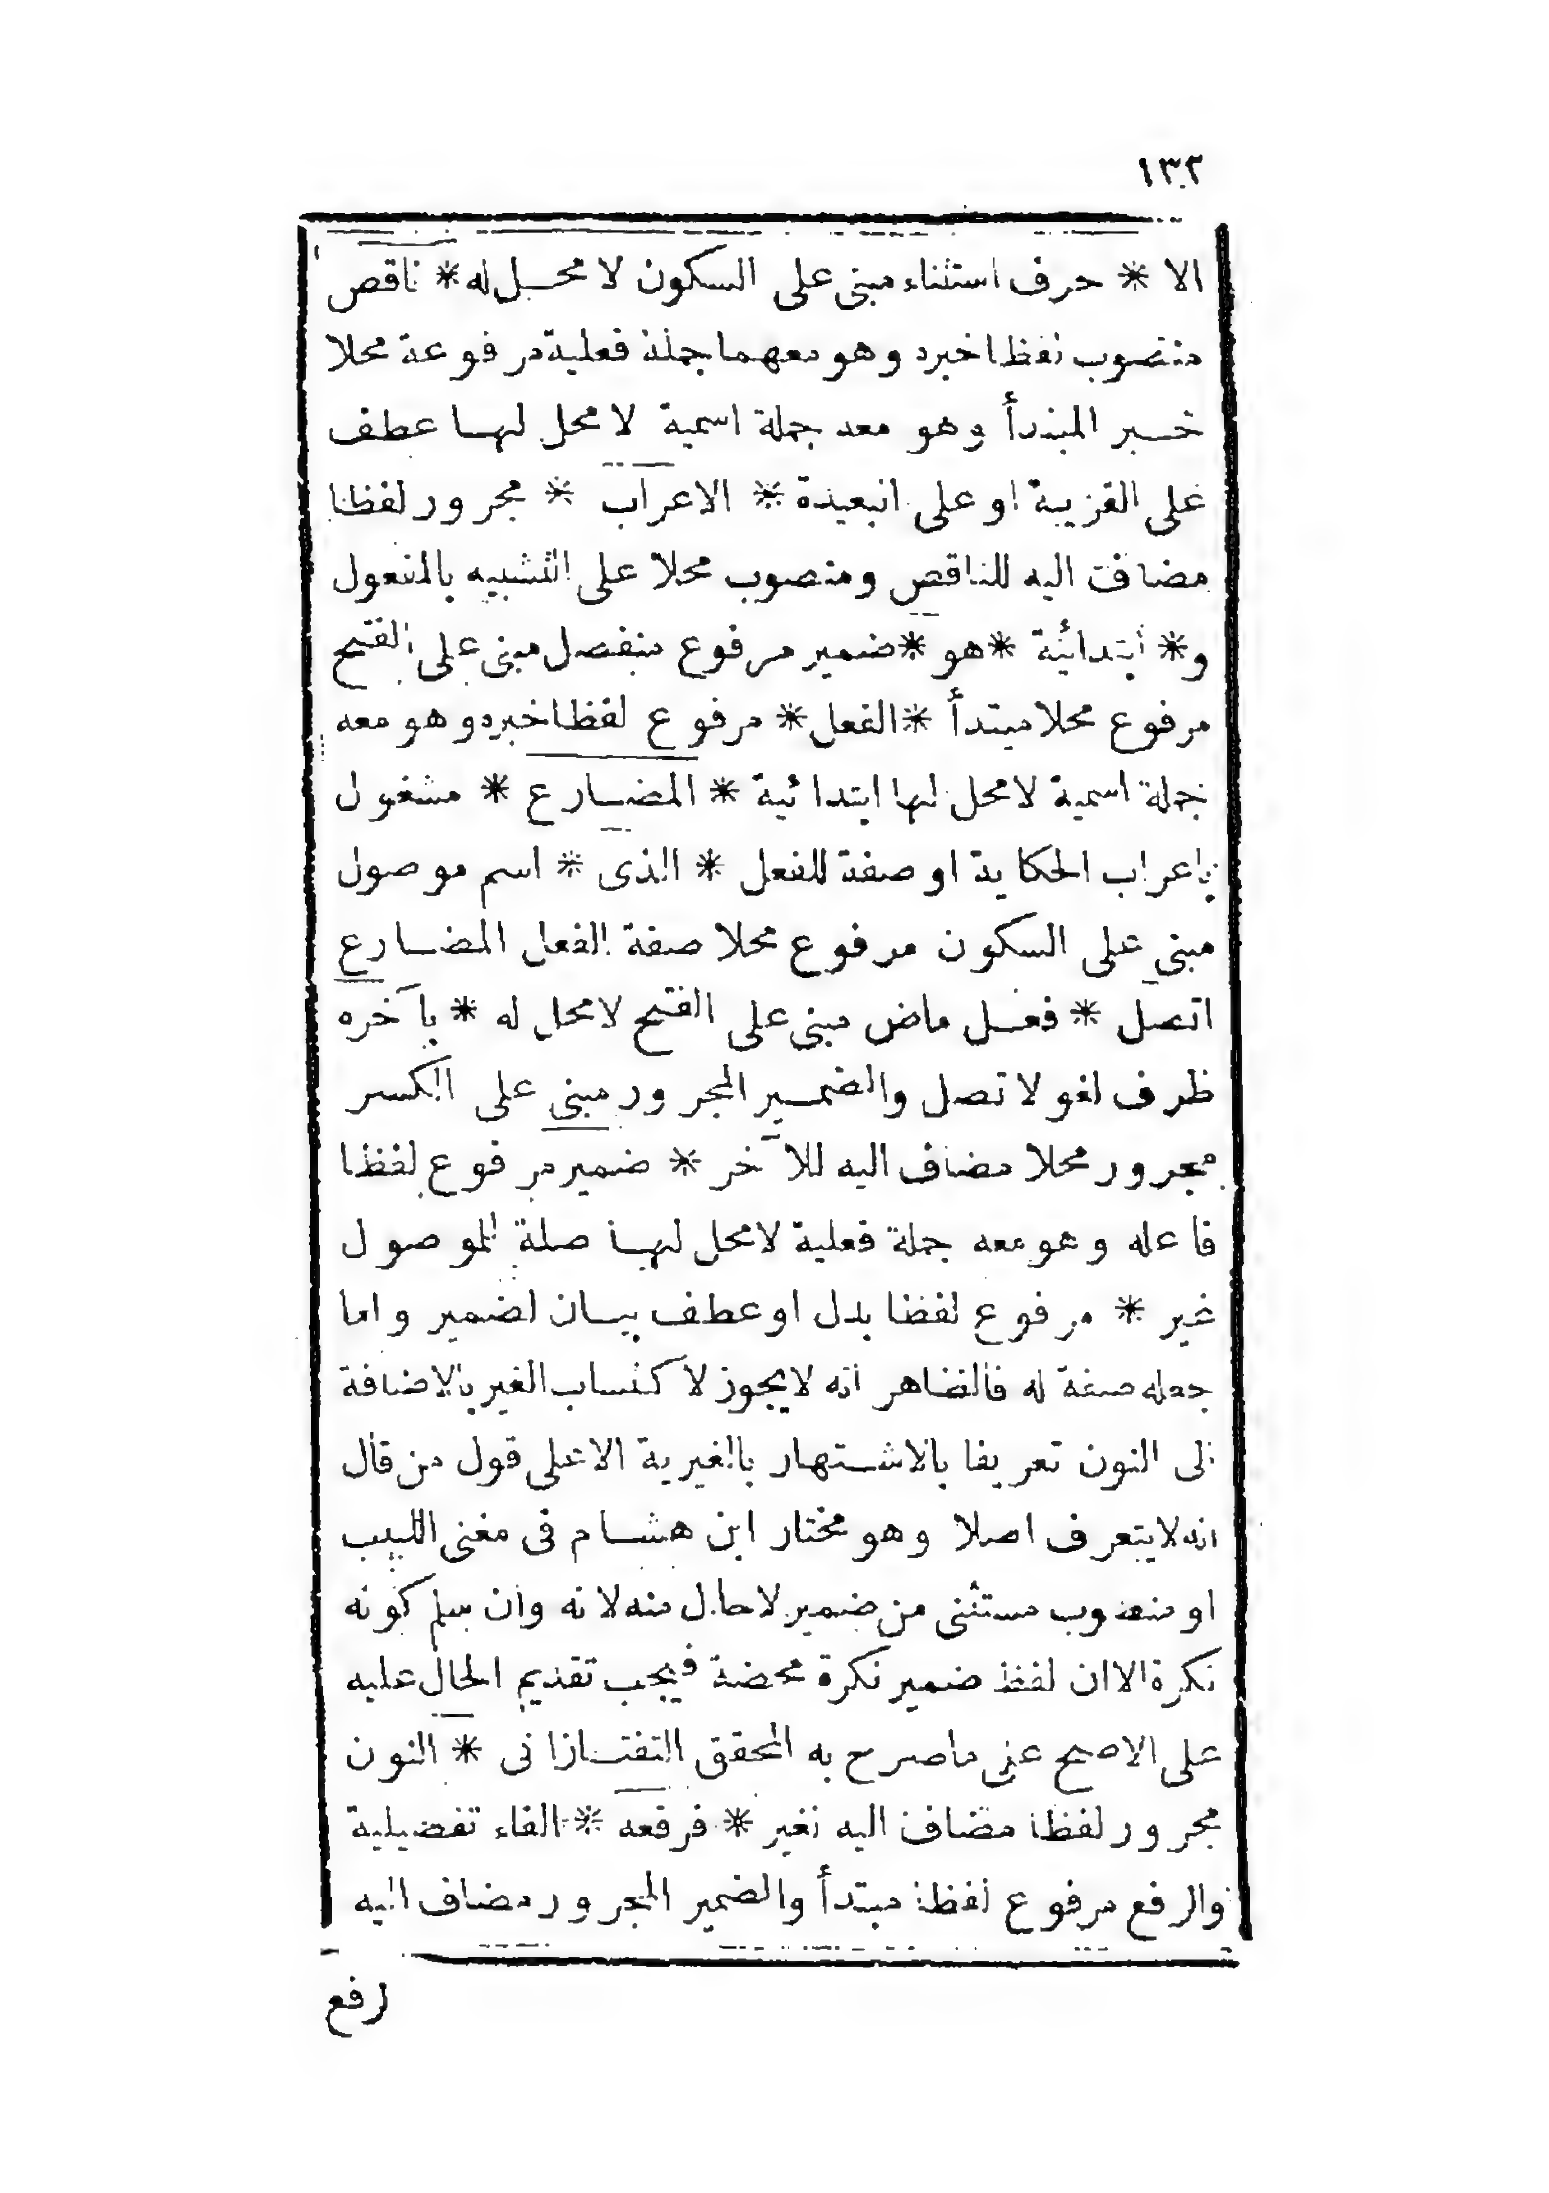 ١٣٢
الا * حرف استثناء مبنى على السكون لا محل له * ناقص
منصوب لفظا خبره وهو معهما جملة فعلية مرفوعة محلا
خبر المبتدأ وهو معه جملة اسمية لا محل لها عطف
على القريبة او على البعيدة * الاعراب * مجرور لفظا
مضاف اليه للناقص ومنصوب محلا على التشبيه بالمفعول
و * ابتدائية * هو * ضمير مرفوع منفصل مبنى على الفتح
مرفوع محلا مبتدأ * الفعل * مرفوع لفظا خبره وهو معه
جملة اسمية لا محل لها ابتدائية * المضارع * مشغول
باعراب الحكاية او صفة للفعل * الذى * اسم موصول
مبنى على السكون مرفوع محلا صفة الفعل المضارع
اتصل * فعل ماض مبنى على الفتح لا محل له * بآخره
ظرف لغو لاتصل والضمير المجرور مبنى على الكسر
مجرور محلا مضاف اليه للآخر * ضمير مرفوع لفظا
فاعله وهو معه جملة فعلية لا محل لها صلة الموصول
غير * مرفوع لفظا بدل او عطف بيان لضمير واما
جعله صفة له فالظاهر انه لا يجوز لاكتساب الغير بالاضافة
الى النون تعريفا بالاشتهار بالغيرية الا على قول من قال
انه لا يتعرف اصلا وهو مختار ابن هشام فى مغنى اللبيب
او منصوب مستثنى من ضمير لا حال منه لانه وان سلم كونه
نكرة الا ان لفظ ضمير نكرة محضة فيجب تقديم الحال عليه
على الاصح على ماصرح به المحقق التفتازانى * النون
مجرور لفظا مضاف اليه لغير * فرفعه * الفاء تفصيلية
والرفع مرفوع لفظا مبتدأ والضمير المجرور مضاف اليه
لرفع